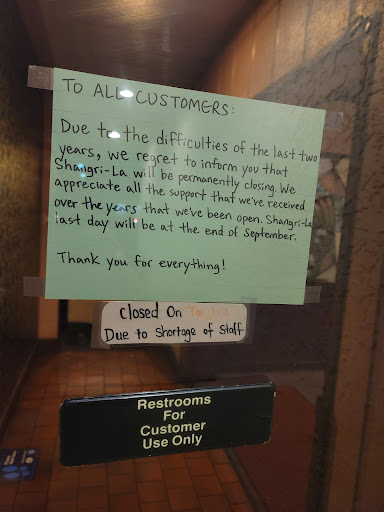 TO ALL CUSTOMERS:
Due to the difficulties of the last two
years, we regret to inform you that
Shangri-La will be permanently closing. We
appreciate all the support that we've received
over the years that we've been open. Shangri-La
last day will be at the end of September.
Thank you for everything!
Closed On
Due to Shortage of Staff
Restrooms
For
Customer
Use Only